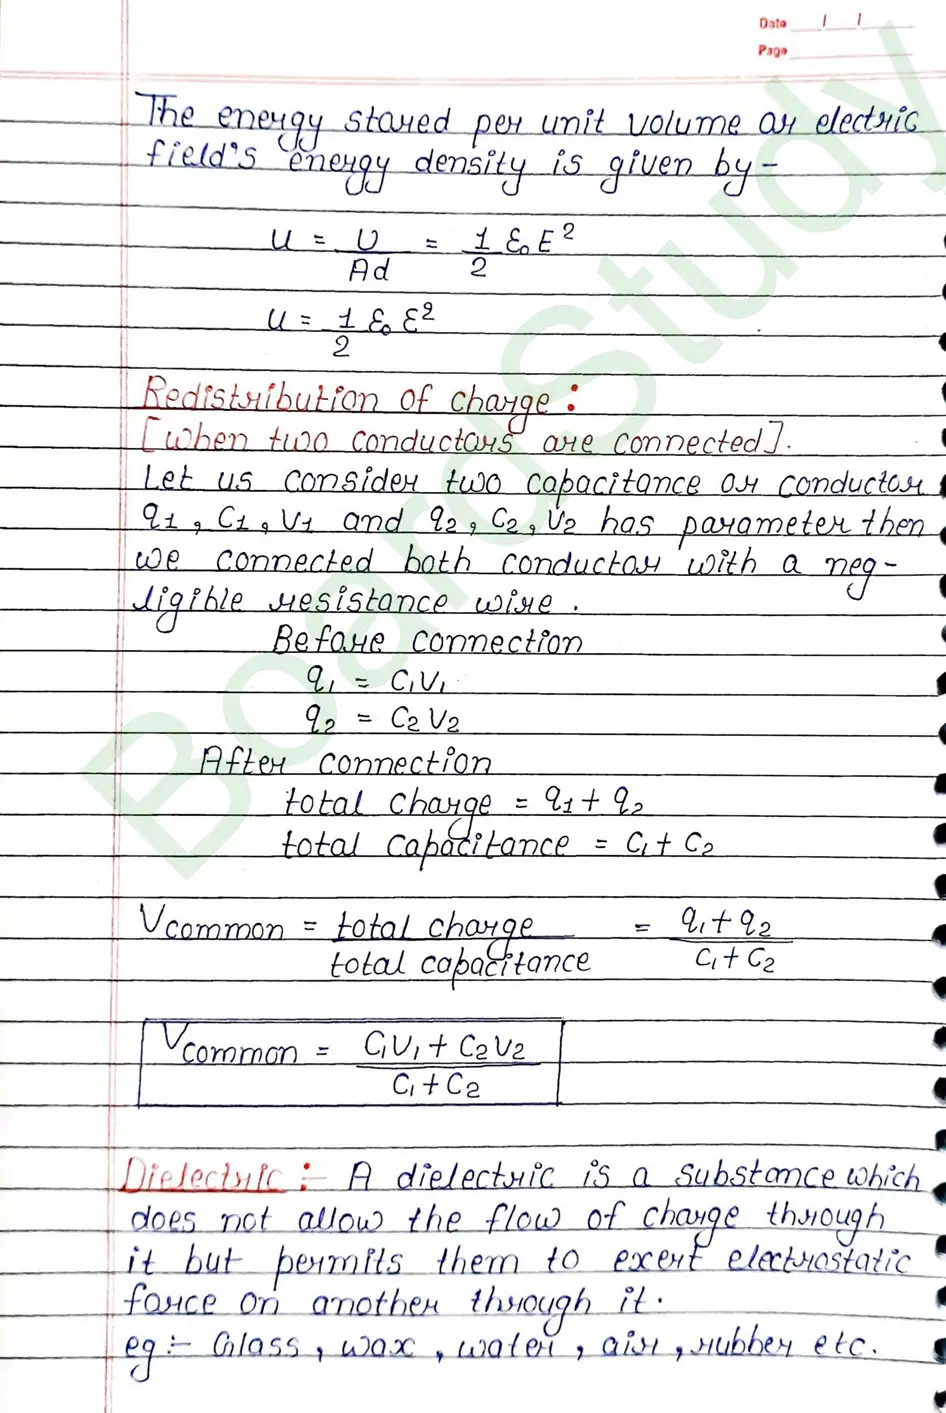 Date / /
Page
The energy stored per unit volume or electric
field's energy density is given by -
u = U/Ad = 1/2 ε₀E²
u = 1/2 ε₀ε²
Redistribution of charge :
[when two conductors are connected].
Let us consider two capacitance or conductor
q1, C1, V1 and q2, C2, V2 has parameter then
we connected both conductor with a neg-
ligible resistance wire.
Before connection
q₁ = C₁V₁
q₂ = C₂V₂
After connection
total charge = q1 + q2
total capacitance = C₁ + C₂
Vcommon = total charge/total capacitance = q₁ + q₂/C₁ + C₂
Vcommon = C₁V₁ + C₂V₂/C₁ + C₂
Dielectric :- A dielectric is a substance which
does not allow the flow of charge through
it but permits them to excert electrostatic
force on another through it.
eg :- Glass, wax, water, air, rubber etc.
BoardStudy